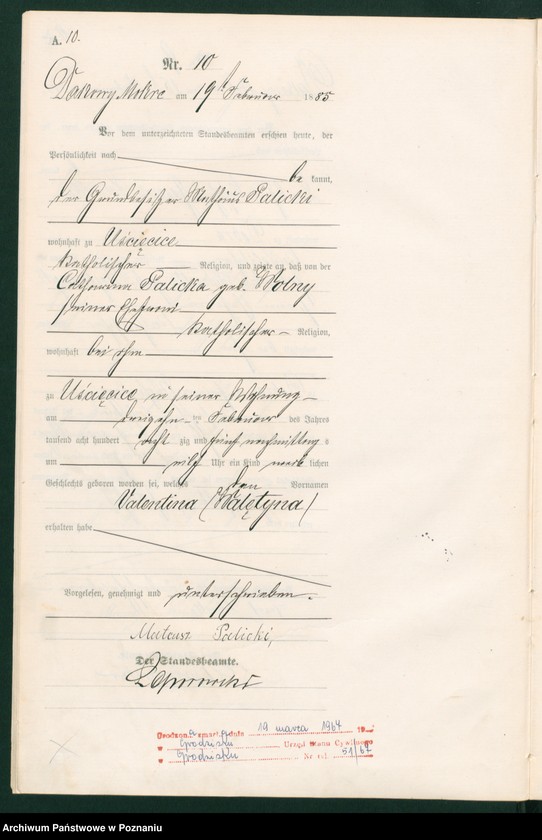 A. 10.
Nr. 10
Dakowy Mokre am 19ten Februar 1885
Vor dem unterzeichneten Standesbeamten erschien heute, der
Persönlichkeit nach
be kannt,
der Grundbesitzer Mathäus Palicki
wohnhaft zu Uścięcice
katholischer Religion, und zeigte an, daß von der
Catharina Palicka geb. Wolny
seiner Ehefrau
katholischer Religion,
wohnhaft bei ihm
zu Uścięcice in seiner Wohnung
am dreizehn ten Februar des Jahres
tausend acht hundert acht zig und fünf nachmittags
um elf Uhr ein Kind weib lichen
Geschlechts geboren worden sei, welches den Vornamen
Valentina (Walętyna)
erhalten habe
Vorgelesen, genehmigt und unterschrieben.
Mateusz Palicki,
Der Standesbeamte.
19 marca 1964
Grodzisku Urząd Stanu Cywilnego
Grodzisku Nr 51/64
Archiwum Państwowe w Poznaniu